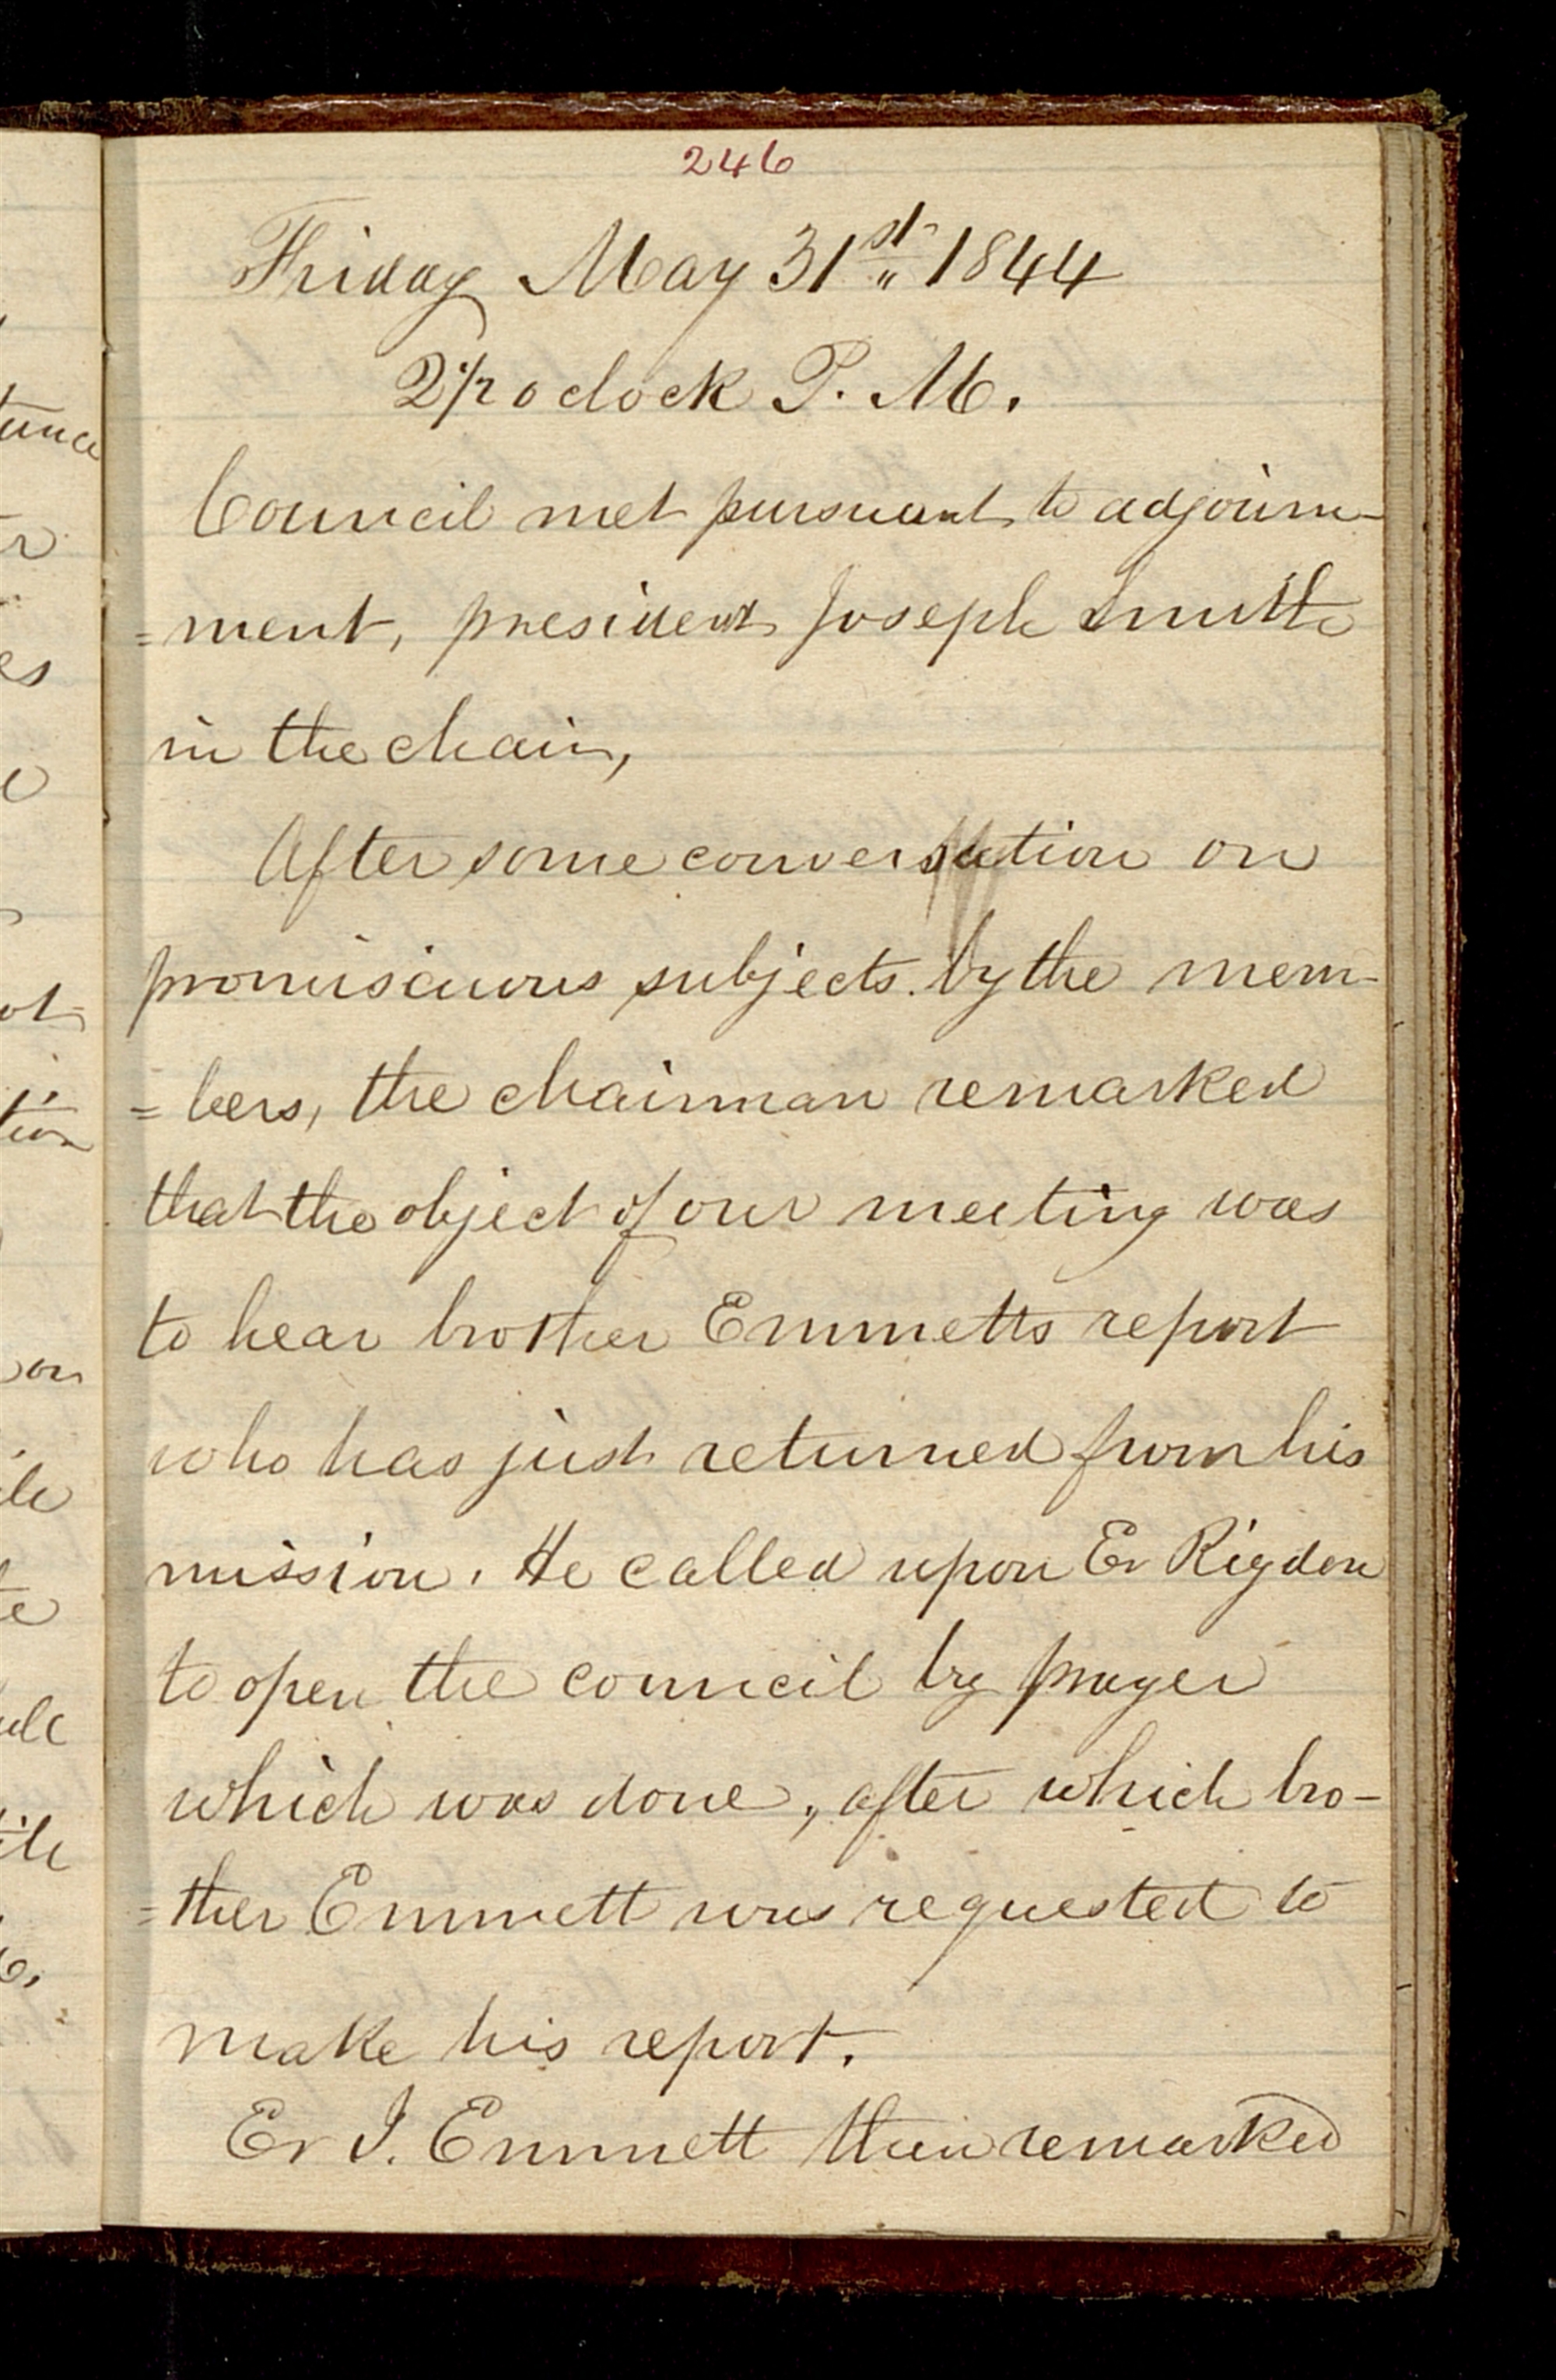 246
Friday May 31st„ 1844
2 1/2 o clock P. M.
Council met pursuant to adjourn-
=ment, president Joseph Smith
in the chair,
After some conversation on
promiscuous subjects by the mem-
=bers, the chairman remarked
that the object of our meeting was
to hear brother Emmetts report
who has just returned from his
mission. He called upon Er Rigdon
to open the council by prayer
which was done, after which bro-
=ther Emmett was requested to
make his report.
Er J. Emmett then remarked